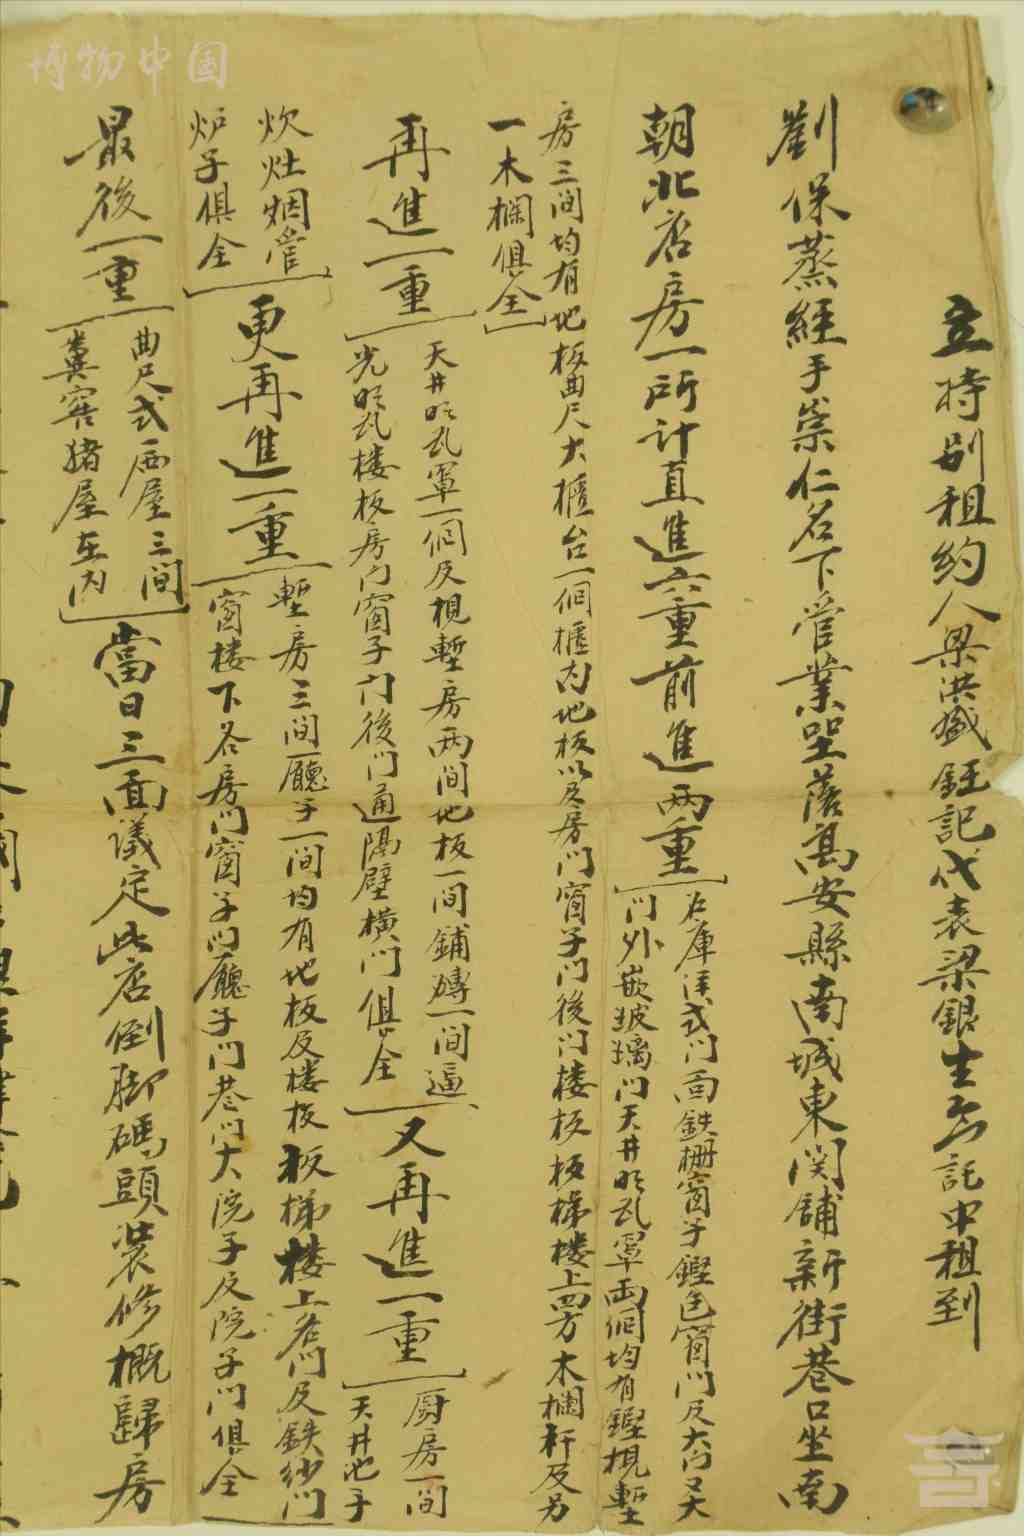 博物中国
立特别租约人梁洪盛鈺記代表梁銀生今託中租到
劉保蒸經手崇仁名下管業坐落萬安縣南城東関鋪新街巷口坐南
朝北店房一所计直進六重前進两重
石庫洋式门面鉄栅窗子鏗色窗门及大门又
门外嵌玻璃门天井明瓦罩両個均有鏗枧塹
房三间均有地板曲尺大櫃台一個櫃内地板以及房门窗子门後门楼板板梯楼上四方木欄杆及另
一木欄俱全
再進一重
天井明瓦罩一個及枧塹房两间地板一间鋪磚一间逼
光明瓦楼板房门窗子门後门通隔壁横门俱全
又再進一重
厨房一间
天井池子
炊灶烟管
炉子俱全
更再進一重
塹房三间廳子一间均有地板及楼板板梯楼上各门及鉄紗门
窗楼下各房门窗子门廳子门巷门大院子及院子门俱全
最後一重
曲尺式西屋三间
糞窖猪屋在内
當日三面議定此店倒脚碼頭装修概歸房